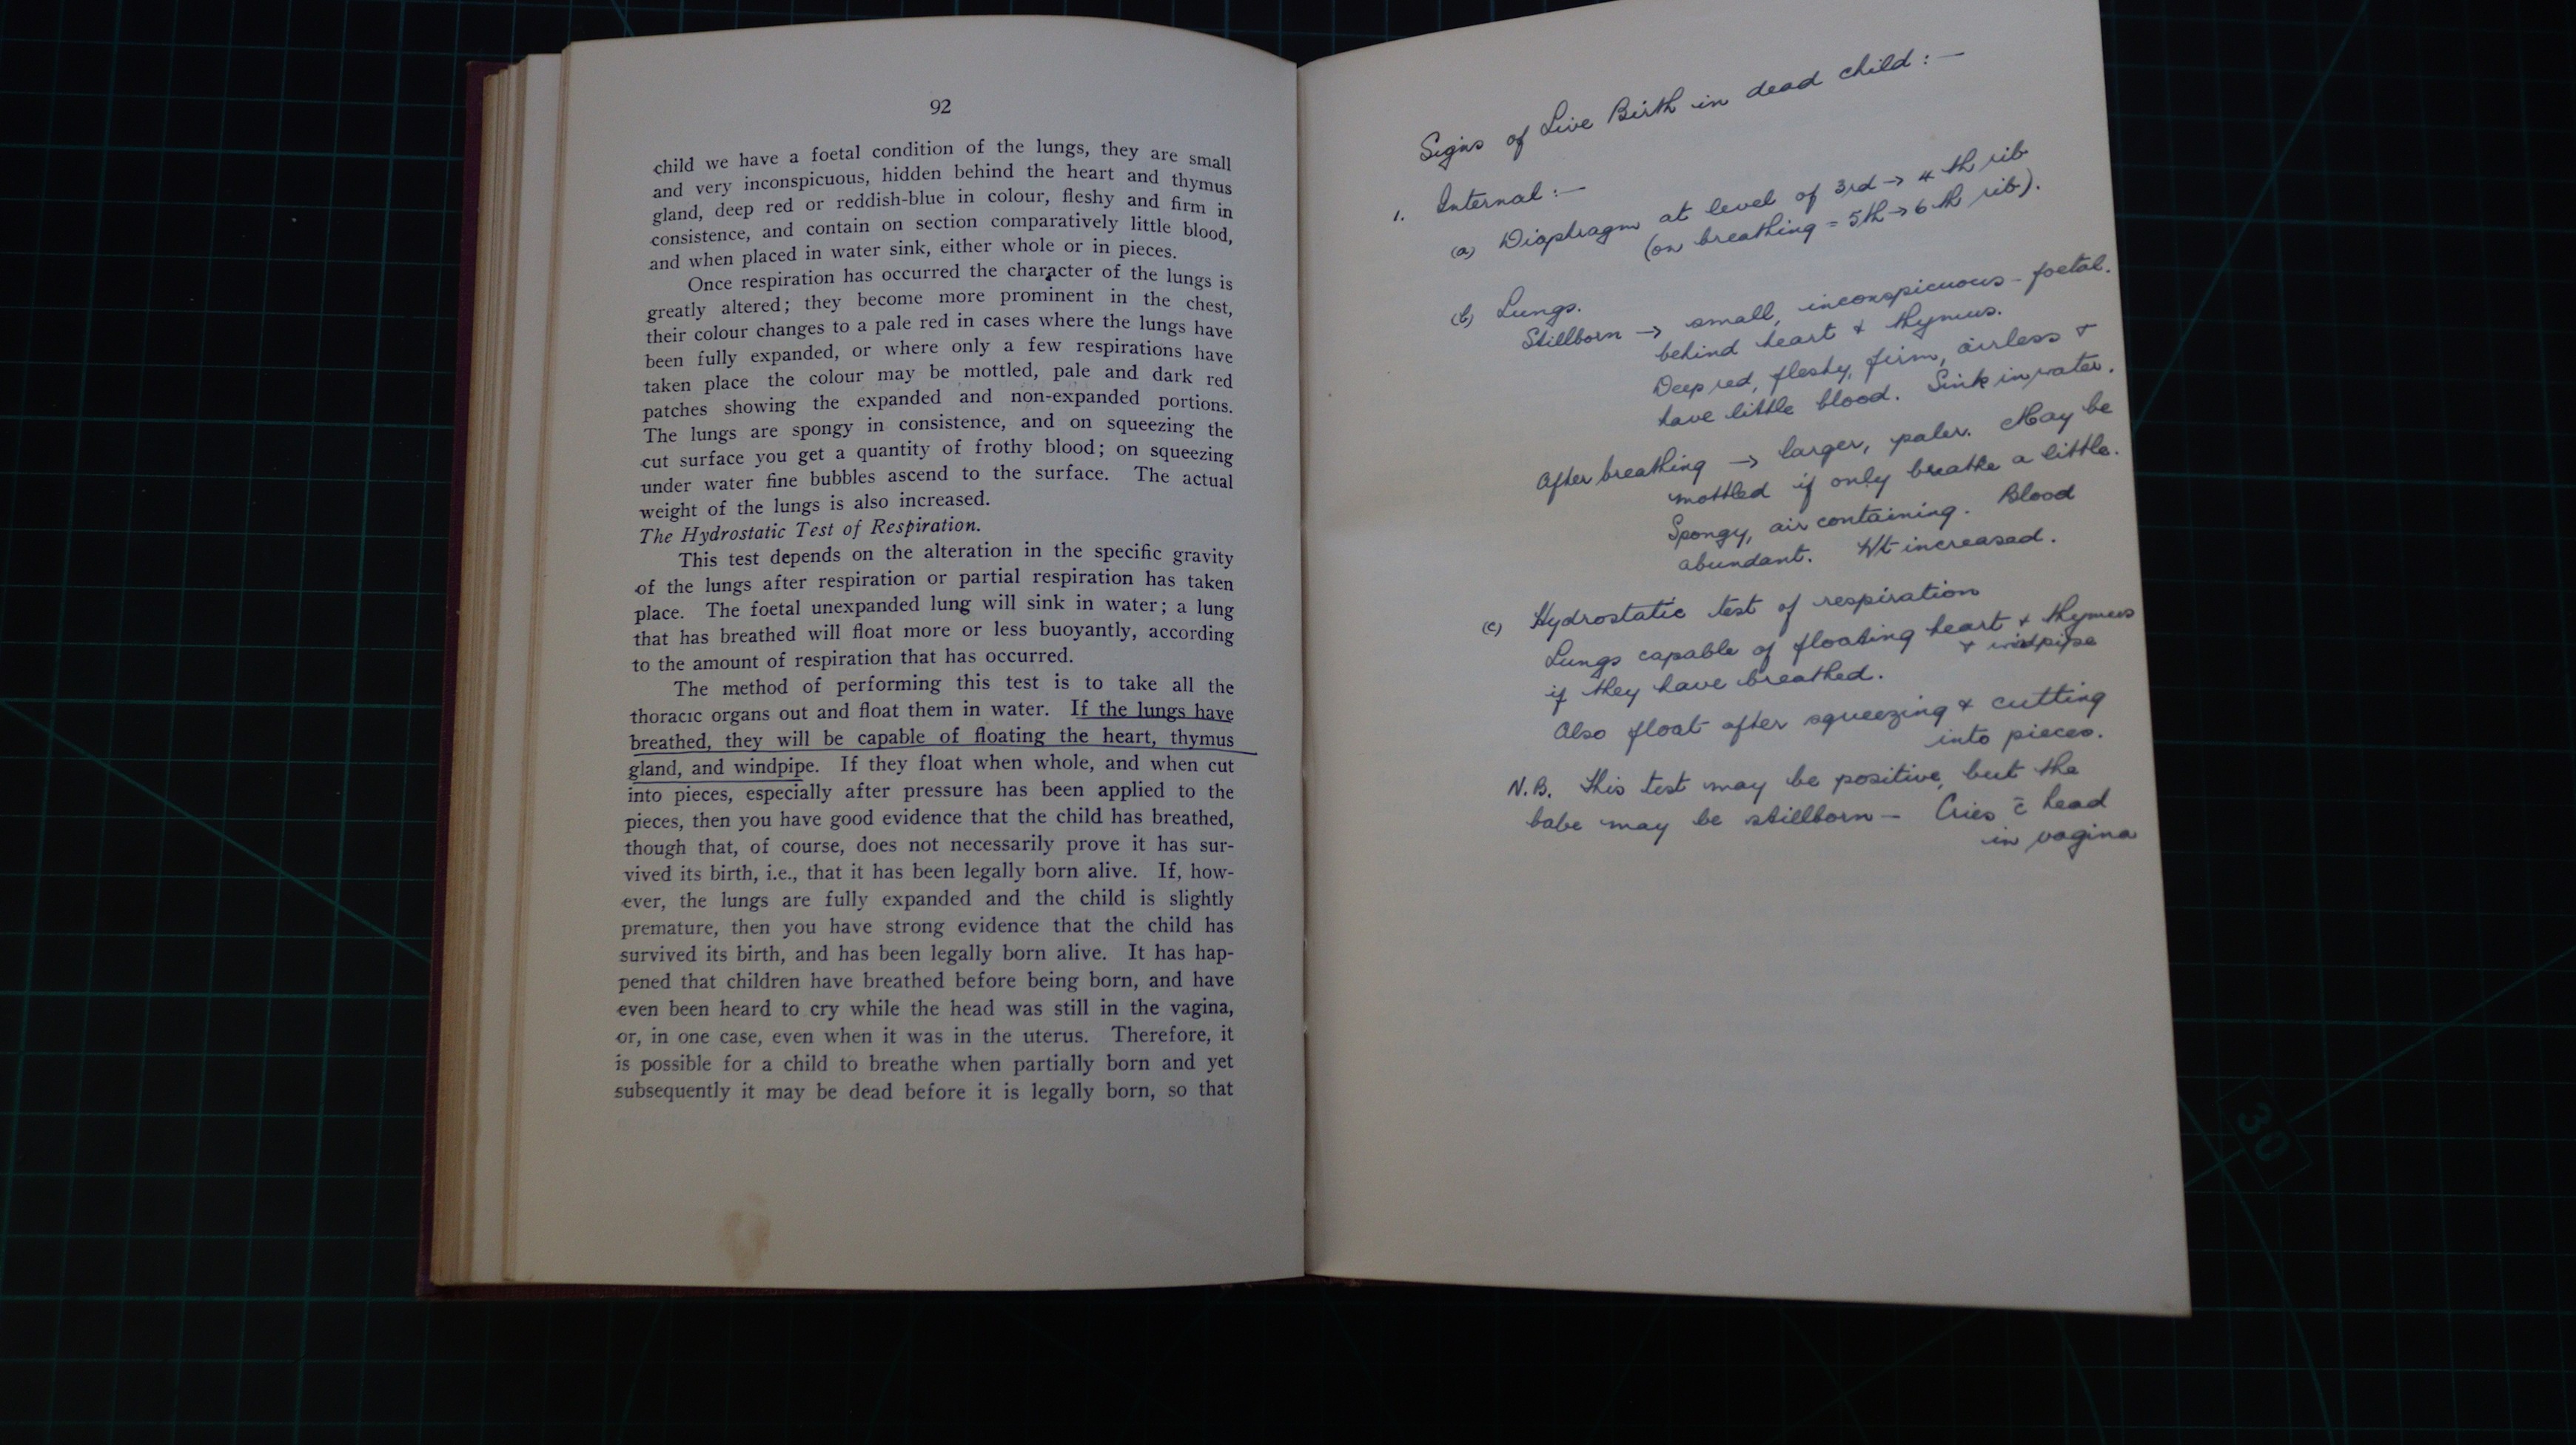 92
child we have a foetal condition of the lungs, they are small
and very inconspicuous, hidden behind the heart and thymus
gland, deep red or reddish-blue in colour, fleshy and firm in
consistence, and contain on section comparatively little blood,
and when placed in water sink, either whole or in pieces.
Once respiration has occurred the character of the lungs is
greatly altered; they become more prominent in the chest,
their colour changes to a pale red in cases where the lungs have
been fully expanded, or where only a few respirations have
taken place the colour may be mottled, pale and dark red
patches showing the expanded and non-expanded portions.
The lungs are spongy in consistence, and on squeezing the
cut surface you get a quantity of frothy blood; on squeezing
under water fine bubbles ascend to the surface. The actual
weight of the lungs is also increased.
The Hydrostatic Test of Respiration.
This test depends on the alteration in the specific gravity
of the lungs after respiration or partial respiration has taken
place. The foetal unexpanded lung will sink in water; a lung
that has breathed will float more or less buoyantly, according
to the amount of respiration that has occurred.
The method of performing this test is to take all the
thoracic organs out and float them in water. If the lungs have
breathed, they will be capable of floating the heart, thymus
gland, and windpipe. If they float when whole, and when cut
into pieces, especially after pressure has been applied to the
pieces, then you have good evidence that the child has breathed,
though that, of course, does not necessarily prove it has sur-
vived its birth, i.e., that it has been legally born alive. If, how-
ever, the lungs are fully expanded and the child is slightly
premature, then you have strong evidence that the child has
survived its birth, and has been legally born alive. It has hap-
pened that children have breathed before being born, and have
even been heard to cry while the head was still in the vagina,
or, in one case, even when it was in the uterus. Therefore, it
is possible for a child to breathe when partially born and yet
subsequently it may be dead before it is legally born, so that
Signs of Live Birth in dead child :—
1. Internal :—
(a) Diaphragm at level of 3rd → 4th rib
(on breathing = 5th → 6th rib).
(b) Lungs.
Stillborn → small, inconspicuous - foetal.
behind heart & thymus.
Deep red, fleshy, firm, airless &
have little blood. Sink in water.
After breathing → larger, paler. May be
mottled if only breathe a little.
Spongy, air containing. Blood
abundant. Wt increased.
(c) Hydrostatic test of respiration
Lungs capable of floating heart & thymus
& windpipe
if they have breathed.
Also float after squeezing & cutting
into pieces.
N.B. This test may be positive, but the
babe may be stillborn — Cries c̄ head
in vagina
30